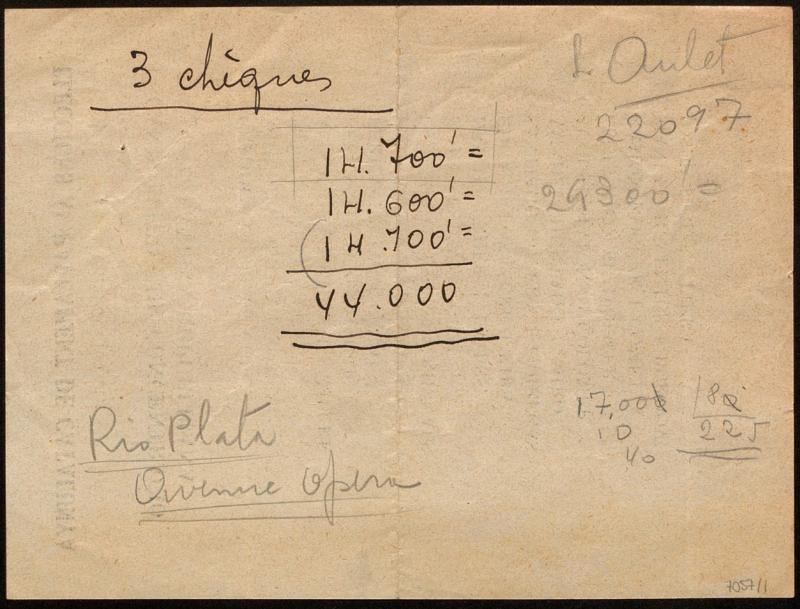 3 chèques
14.700' =
14.600' =
14.700' =
44.000
L Aulet
22097
29300' =
Rio Plata
Avenue Opera
80
225
10
40
7057/1